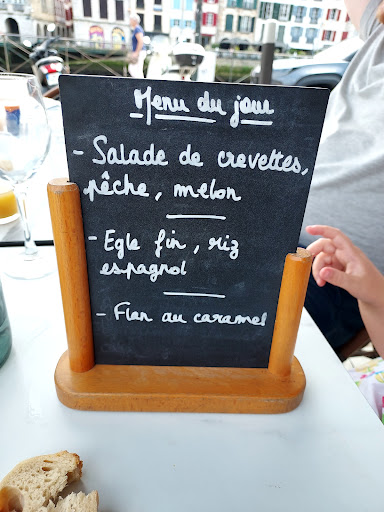 Menu du jour
- Salade de crevettes,
pêche, melon
- Egle fin, riz
espagnol
- Flan au caramel